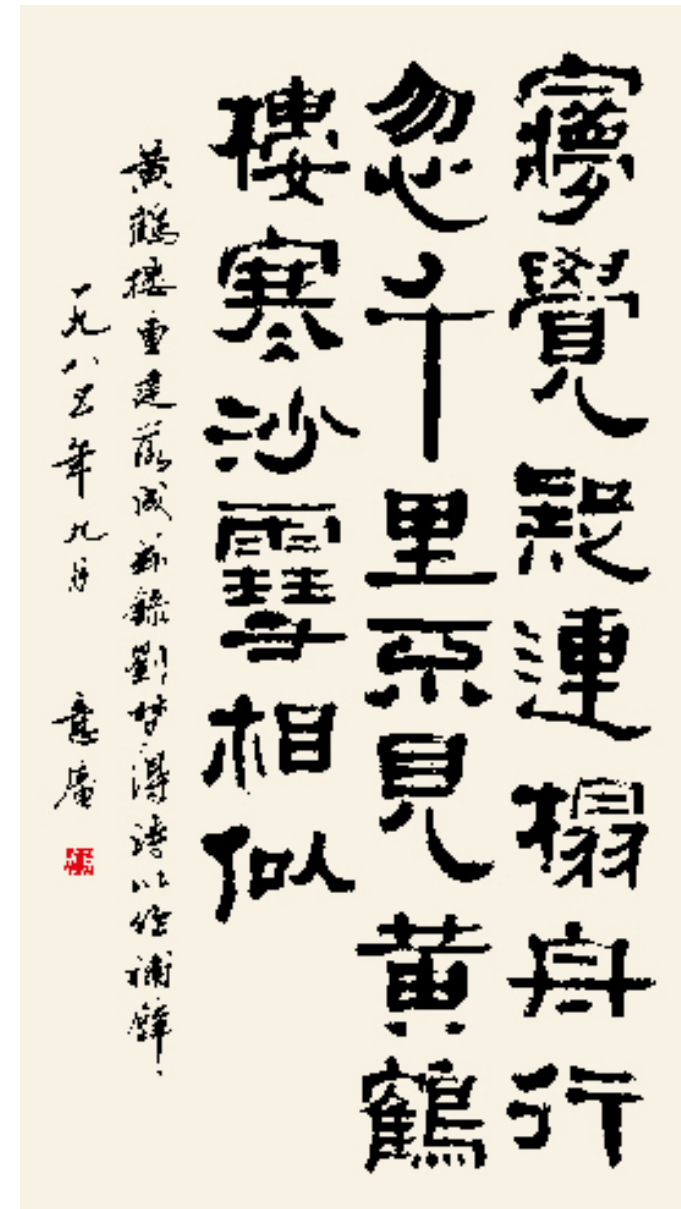 夢覺疑連榻舟行
忽千里不見黄鶴
樓寒沙雪相似
黄鶴樓重建落成茲錄劉梦得詩以作補壁
一九八五年九月